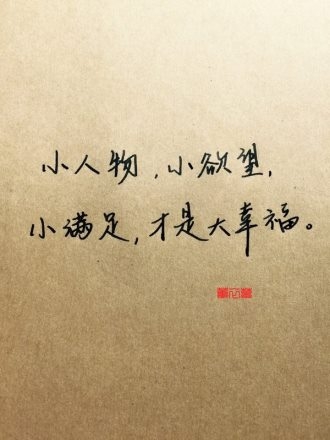 小人物，小欲望，
小满足，才是大幸福。